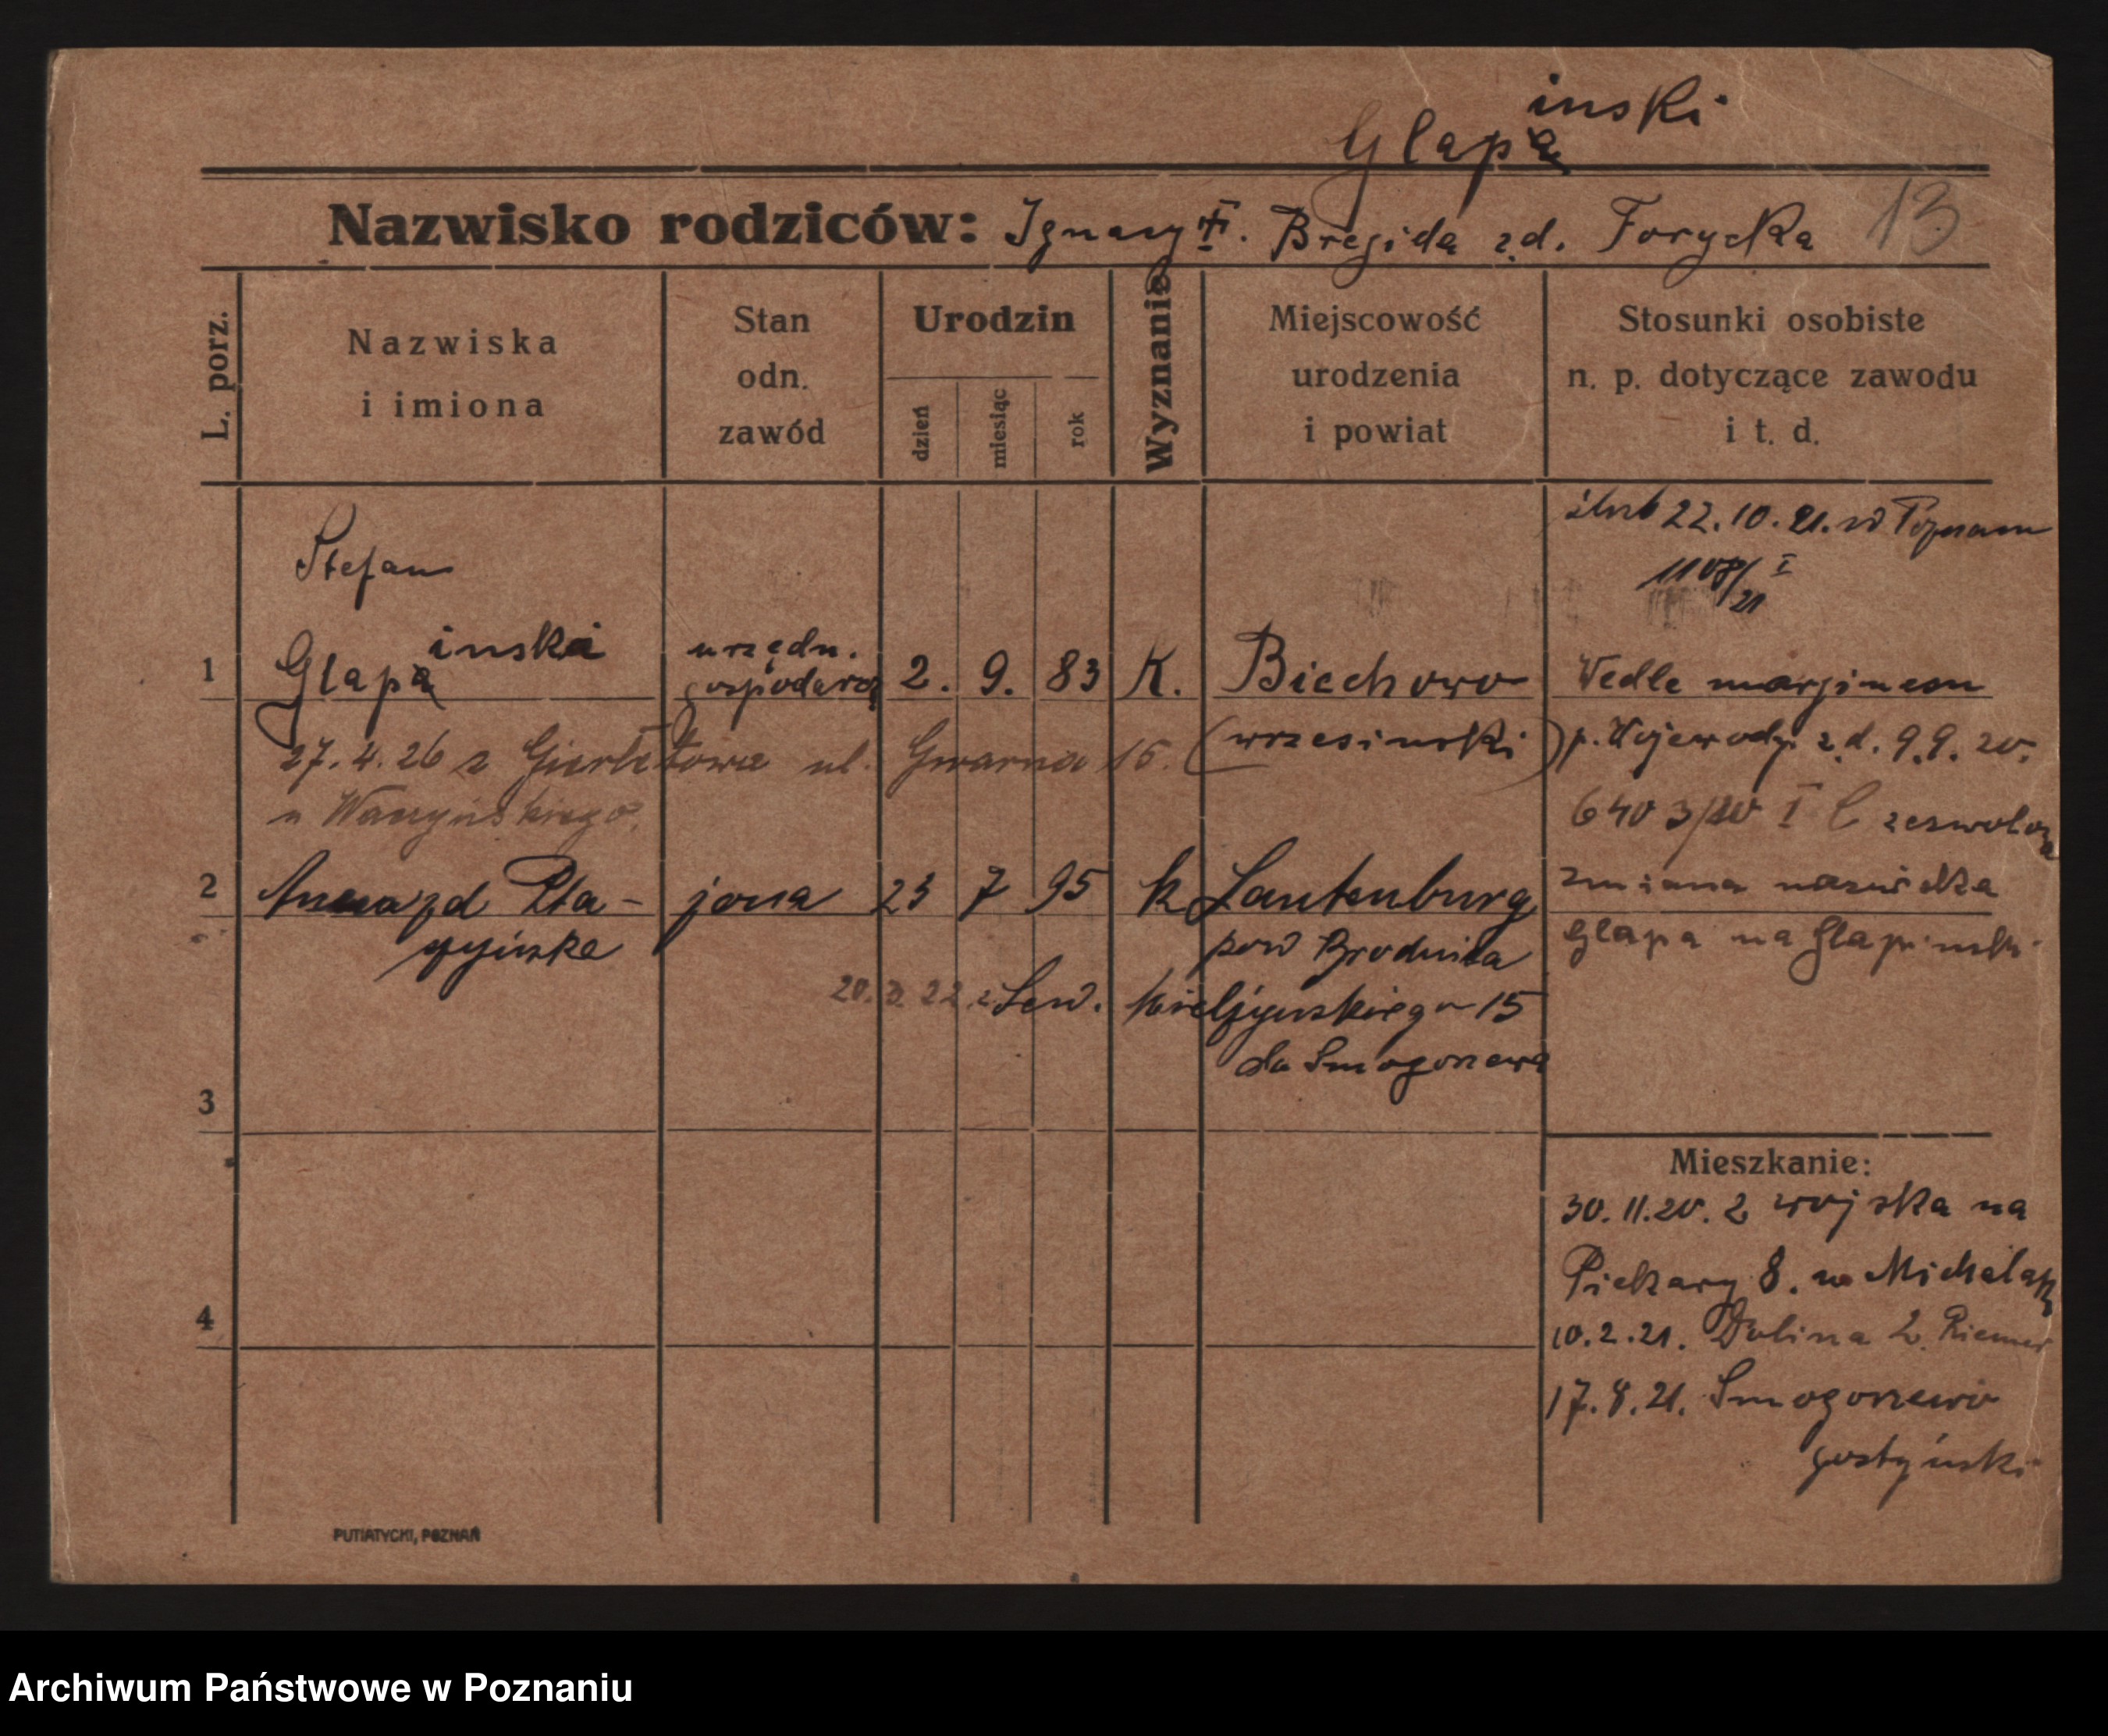 inski
Glapa
Nazwisko rodziców: Ignacy Bregida z d. Forycka 13
L. porz.
Nazwiska
i imiona
Stan
odn.
zawód
Urodzin
dzień
miesiąc
rok
Wyznanie
Miejscowość
urodzenia
i powiat
Stosunki osobiste
n. p. dotyczące zawodu
i t. d.
ślub 22.10.21. w Poznaniu
1108/21 I
Stefan
inski
1 Glapa urzędn. gospodarczy 2. 9. 83 K. Biechowo
(wrzesinski)
27.4.26 z ul. Gwarna 15.
u
Wedle marginesu
p. Wojewody z d. 9.9.20.
6403/20 I C zezwolona
zmiana nazwiska
Glapa na Glapinski
2 zd Pta-
żona 23 7 95 k Lautenburg
pow Brodnica
20.3.22 z Sew. Mielżyńskiego 15
do Smogorzewa
3
4
Mieszkanie:
30.11.20. z wojska na
Piekary 8. u Michalak
10.2.21. Dolina 2. Riemer
17.8.21. Smogorzewo
gostyński
PUTIATYCKI, POZNAŃ
Archiwum Państwowe w Poznaniu